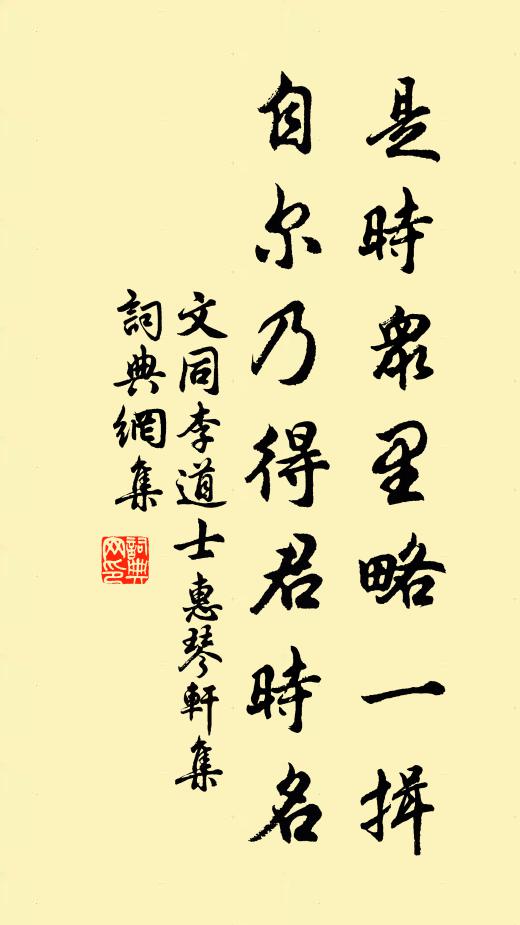 是時眾里略一揖
自尔乃得君時名
文同李道士惠琴軒集
詞典網集
詞典網印